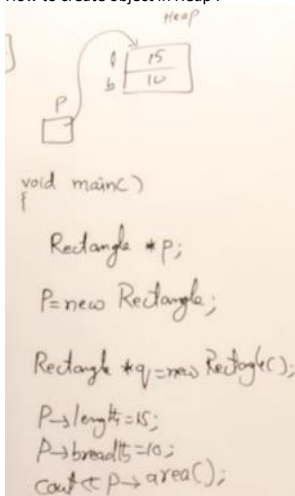 How to create object in Heap ?
Heap
l 15
b 10
P
void main()
{
Rectangle *p;
P=new Rectangle;
Rectangle *q=new Rectangle();
P->length=15;
P->breadth=10;
cout << P-> area();